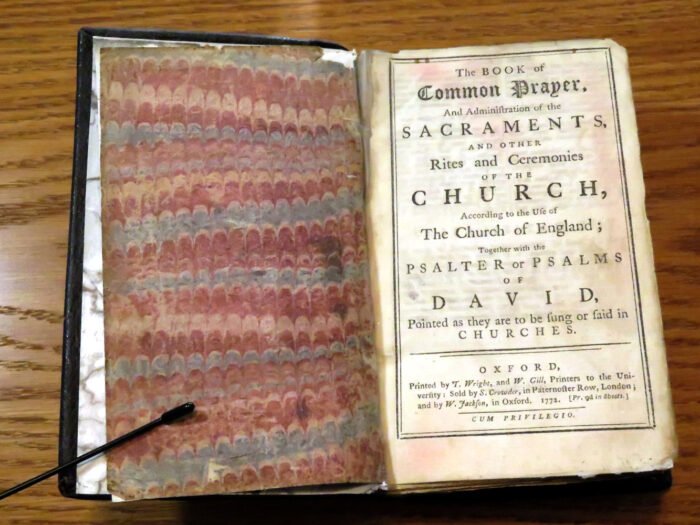 The BOOK of
Common Prayer,
And Adminiſtration of the
SACRAMENTS,
AND OTHER
Rites and Ceremonies
OF THE
CHURCH,
According to the Uſe of
The Church of England;
Together with the
PSALTER or PSALMS
OF
DAVID,
Pointed as they are to be ſung or ſaid in
CHURCHES.
OXFORD,
Printed by T. Wright, and W. Gill, Printers to the Uni-
verſity: Sold by S. Crowder, in Paternoſter Row, London;
and by W. Jackſon, in Oxford. 1772. [Pr. 9d in Sheets.]
CUM PRIVILEGIO.